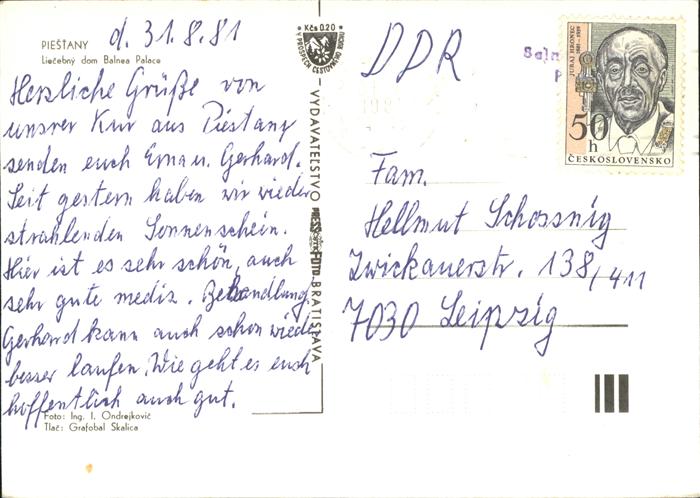 PIEŠŤANY
Liečebný dom Balnea Palace
d. 31.8.81
Herzliche Grüße von
unsrer Kur aus Piestany
senden euch Erna u. Gerhard.
Seit gestern haben wir wieder
strahlenden Sonnenschein.
Hier ist es sehr schön, auch
sehr gute mediz. Behandlung.
Gerhard kann auch schon wieder
besser laufen. Wie geht es euch
hoffentlich auch gut.
Foto: Ing. I. Ondrejkovič
Tlač: Grafobal Skalica
Kčs 0.20
V PROSPECH CESTOVNÉHO RUCHU
VYDAVATEĽSTVO
BRATISLAVA
DDR
JURAJ HRONEC
1881-1959
50
h
ČESKOSLOVENSKO
Fam.
Hellmut Schossnig
Zwickauerstr. 138/411
7030 Leipzig